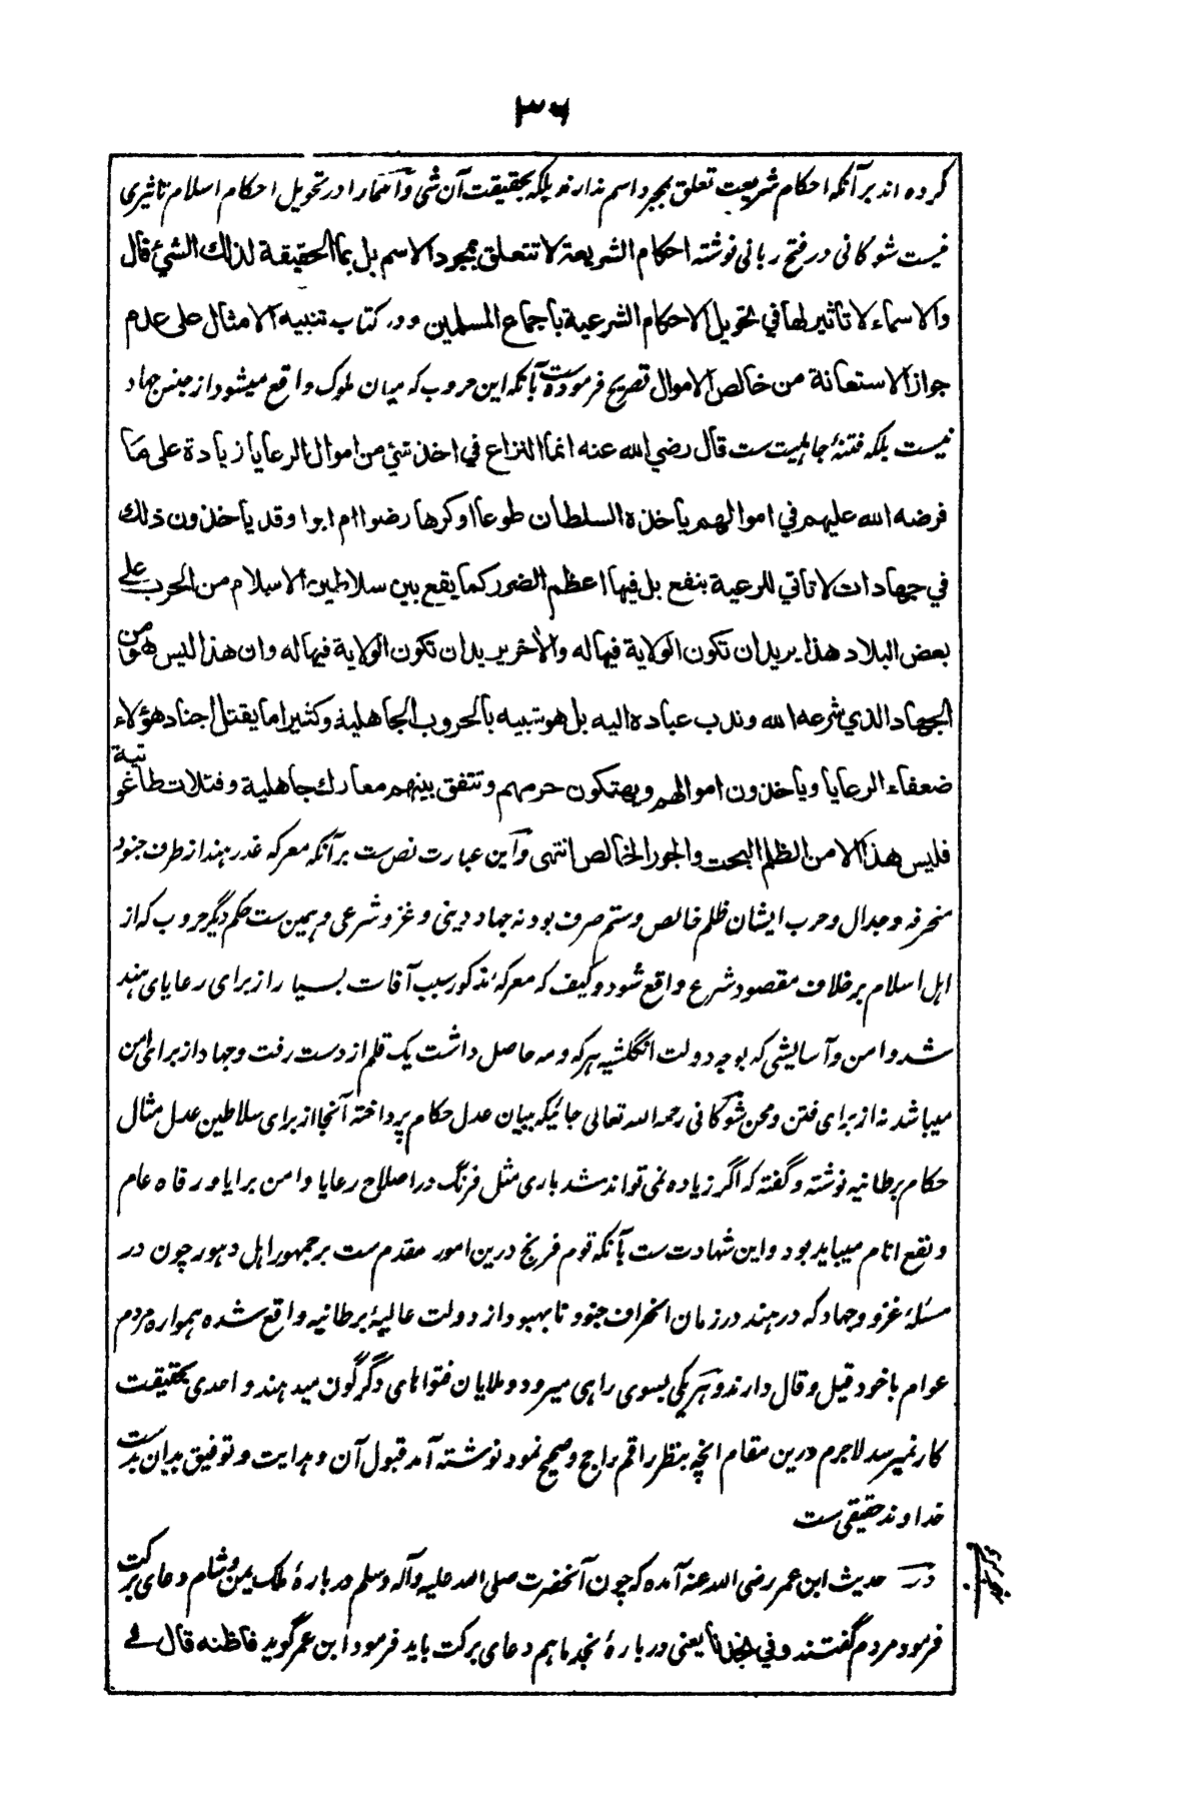 ۳۶
کرده اند بر آنکه احکام شریعت تعلق بمجرد اسم ندارند بلکه بحقیقت آن شی و اسما را در تحویل احکام اسلام تاثیری
نیست شوکانی در فتح ربانی نوشته احکام الشریعة لا تتعلق بمجرد الاسم بل بما الحقیقة لذلك الشئ قال
والاسماء لا تأثیر لها في تحویل الاحکام الشرعیة بأجماع المسلمین و در کتاب تنبیه الامثال علی عدم
جواز الاستعانة من خالص الاموال تصریح فرموده ست بآنکه این حروب که میان ملوک واقع میشود از جنس جهاد
نیست بلکه فتنهٔ جاهلیت ست قال رضي الله عنه انما النزاع في اخذ شئ من اموال الرعایا زیادة علی ما
فرضه الله علیهم في اموالهم یأخذه السلطان طوعا اوکرها رضوا ام ابوا وقد یأخذون ذلك
في جهادات لا تأتي للرعیة بنفع بل فیها اعظم الضرر کما یقع بین سلاطین الاسلام من الحرب علی
بعض البلاد هذا یرید ان تکون الولایة فیها له والأخر یرید ان تکون الولایة فیها له وان هذا لیس هو من
الجهاد الذي شرعه الله وندب عباده الیه بل هو شبیه بالحروب الجاهلیة وکثیرا ما یقتل اجناد هؤلاء
ضعفاء الرعایا ویأخذون اموالهم ویهتکون حرمهم وتتفق بینهم معارك جاهلیة وفتلات طاغوتیة
فلیس هذا الا من الظلم البحت والجور الخالص انتهی و این عبارت نص ست بر آنکه معرکه غدر هند از طرف جنود
منحرفه و جدال و حرب ایشان ظلم خالص و ستم صرف بود نه جهاد دینی و غزو شرعی و همین ست حکم دیگر حروب که از
اهل اسلام بر خلاف مقصود شرع واقع شود و کیف که معرکهٔ مذکور سبب آفات بسیار از برای رعایای هند
شد و امن و آسایشی که بوجه دولت انگلشیه هر که و مه حاصل داشت یک قلم از دست رفت و جهاد از برای امن
میباشد نه از برای فتن و محن شوکانی رحمه الله تعالی جائیکه ببیان عدل حکام پرداخته آنجا از برای سلاطین عدل مثال
حکام برطانیه نوشته و گفته که اگر زیاده نمی تواند شد باری مثل فرنگ در اصلاح رعایا و امن برایا و رفاه عام
و نفع انام میباید بود و این شهادت ست بآنکه قوم فرنج درین امور مقدم ست بر جمهور اهل دهور چون در
مسئلهٔ غزو و جهاد که در هند در زمان انحراف جنود نا بهبود از دولت عالیهٔ برطانیه واقع شده همواره مردم
عوام با خود قیل و قال دارند و هر یکی بسوی راهی میرود و ملایان فتواهای دگرگون میدهند و احدی بحقیقت
کار نمیرسد لاجرم درین مقام انچه بنظر راقم راجح و صحیح نمود نوشته آمد قبول آن و هدایت و توفیق بدان بدست
خداوند حقیقی ست
در حدیث ابن عمر رضی الله عنه آمده که چون آنحضرت صلی الله علیه وآله وسلم در بارهٔ ملک یمن و شام دعای برکت
فرمود مردم گفتند وفي نجدنا یعنی در بارهٔ نجد ما هم دعای برکت باید فرمود ابن عمر گوید فاظنه قال في